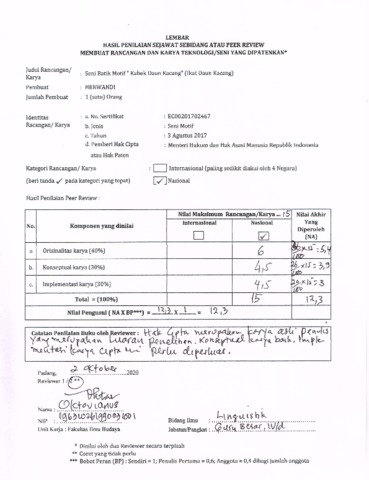 LEMBAR
HASIL PENILAIAN SEJAWAT SEBIDANG ATAU PEER REVIEW
MEMBUAT RANCANGAN DAN KARYA TEKNOLOGI/SENI YANG DIPATENKAN*
Judul Rancangan/ Karya : Seni Batik Motif " Kabek Daun Kacang" (Ikat Daun Kacang)
Pembuat : HERWANDI
Jumlah Pembuat : 1 (satu) Orang
Identitas Racangan/ Karya : a. No. Sertifikat : EC00201702467
b. Jenis : Seni Motif
c. Tanggal : 3 Agustus 2017
d. Pemberi Hak Cipta atau Hak Paten : Menteri Hukum dan Hak Asasi Manusia Republik Indonesia
Kategori Rancangan/ Karya : Internasional (paling sedikit diakui oleh 4 Negara)
(beri tanda ✓ pada kategori yang tepat) ✓ Nasional
Hasil Penilaian Peer Review :
No. Komponen yang dinilai Nilai Maksimum Rancangan/Karya 15 Nilai Akhir Yang Diperoleh (NA)
Internasional Nasional ✓
a Orisinalitas karya (40%) 6 5,4
b. Konseptual karya (30%) 4,5 3,9
c. Implementasi karya (30%) 4,5 3
Total = (100%) 15 12,3
Nilai Pengusul ( NA X BP***) = 12,3 x 1 = 12,3
Catatan Penilaian Buku oleh Reviewer : Hak Cipta merupakan karya asli Penulis
yang merupakan luaran penelitian. Konseptual karya baik. Imple
mentasi karya cipta ini perlu diperluas.
Padang, 2 Oktober 2020
Reviewer 1 /
Nama : Oktavianus
NIP :
Unit Kerja : Fakultas Ilmu Budaya
Bidang Ilmu : Linguistik
Jabatan/Pangkat : Guru Besar, IV/d
* Dinilai oleh dua Reviewer secara terpisah
** Coret yang tidak perlu
*** Bobot Peran (BP) : Sendiri = 1; Penulis Pertama = 0,6; Anggota = 0,4 dibagi jumlah anggota